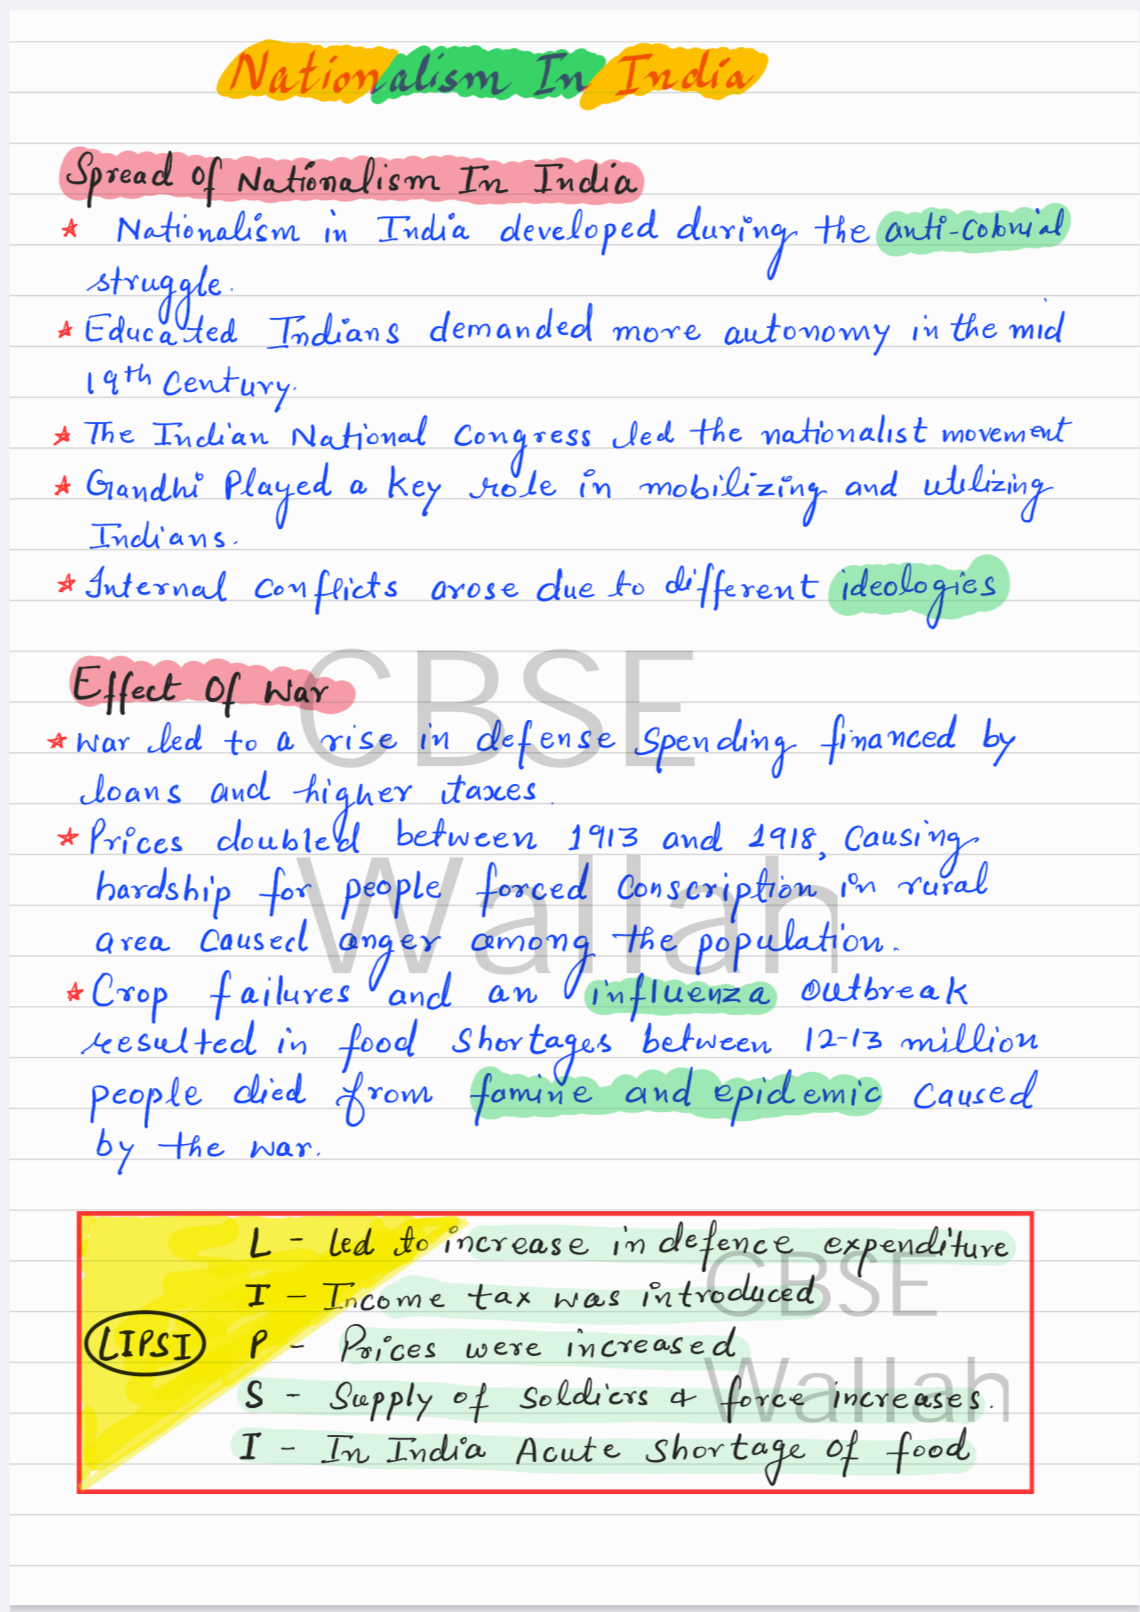 Nationalism In India
Spread of Nationalism In India
★ Nationalism in India developed during the anti-colonial
struggle.
★ Educated Indians demanded more autonomy in the mid
19th Century.
★ The Indian National Congress led the nationalist movement
★ Gandhi Played a key role in mobilizing and utilizing
Indians.
★ Internal Conflicts arose due to different ideologies
CBSE
Effect Of War
★ War led to a rise in defense Spending financed by
loans and higher taxes.
★ Prices doubled between 1913 and 1918, Causing
Wallah
hardship for people forced Conscription in rural
area Caused anger among the population.
★ Crop failures and an influenza outbreak
resulted in food Shortages between 12-13 million
people died from famine and epidemic Caused
by the war.
L - led to increase in defence expenditure
CBSE
I - Income tax was introduced
LIPSI P - Prices were increased
Wallah
S - Supply of Soldiers & force increases.
I - In India Acute Shortage of food